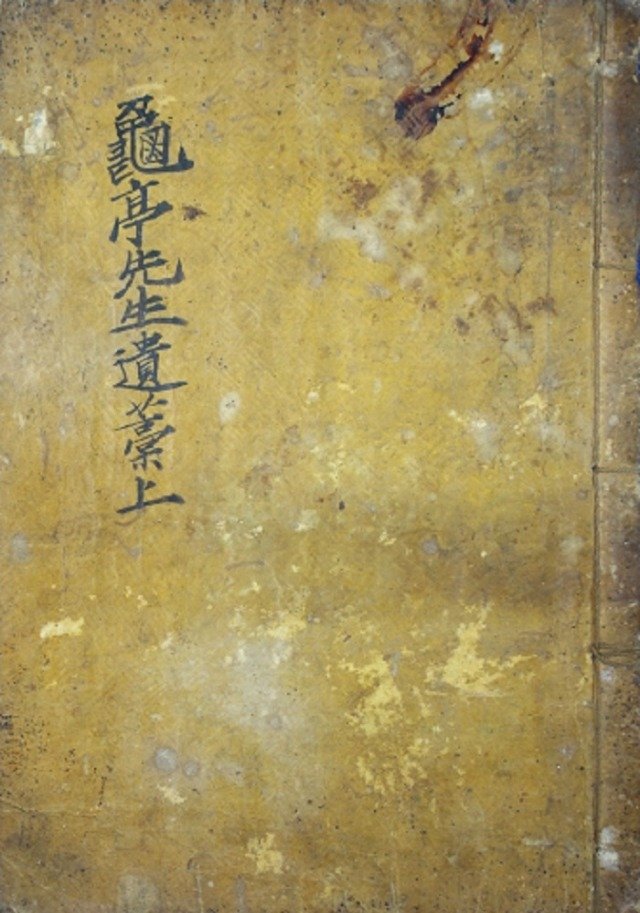 龜亭先生遺藁上